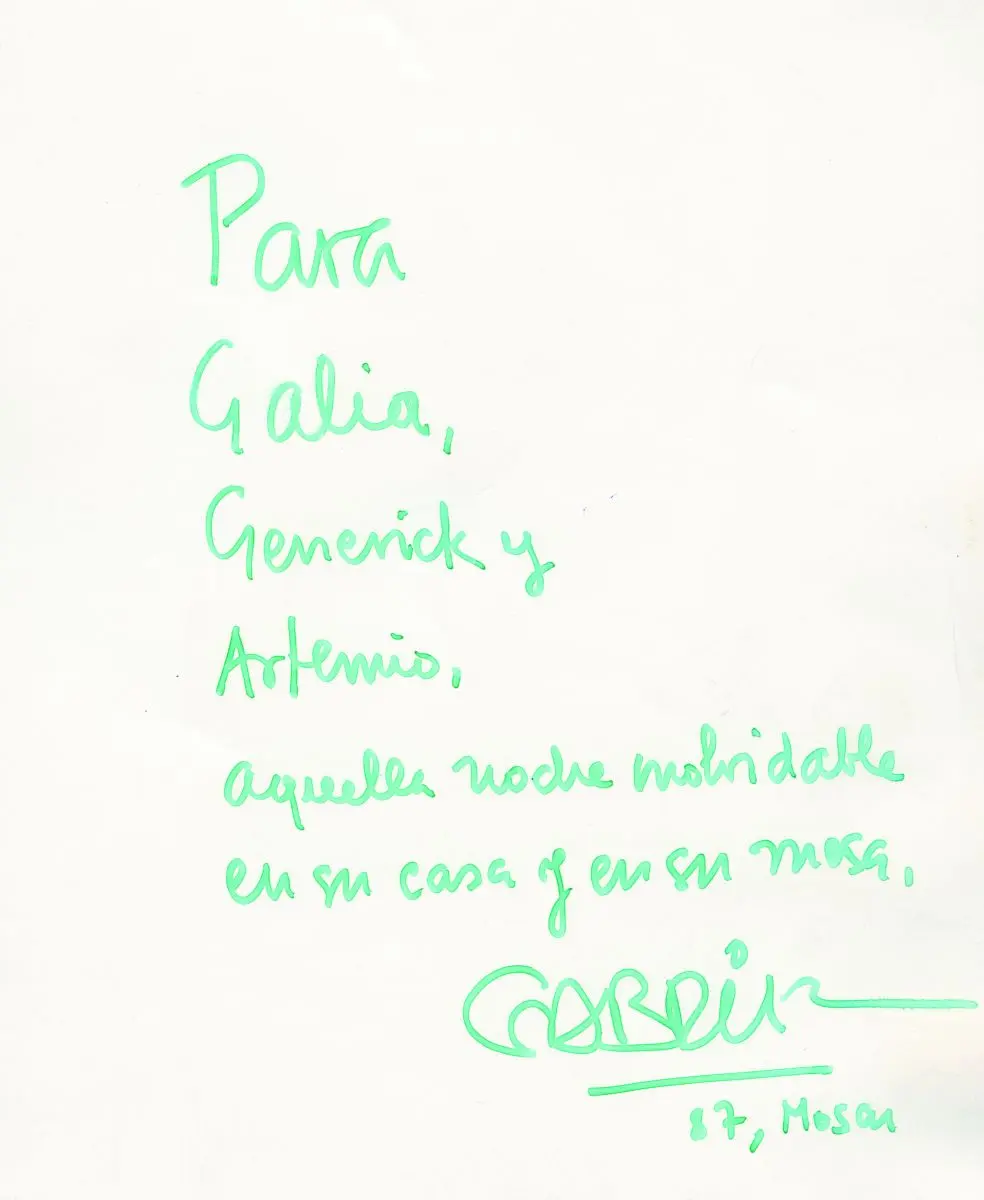 Para
Galia,
Generick y
Artemio,
aquella noche inolvidable
en su casa y en su mesa,
GABRIEL
87, Moscu